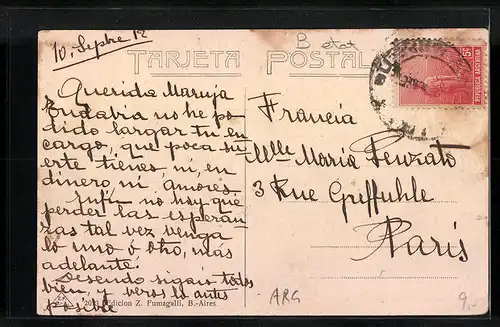 10. Sepbre 12
TARJETA POSTAL
B etat
5c
REPUBLICA ARGENTINA
Querida Maruja
Todabia no he po
dido largar tu en
cargo, que poca su
erte tienes, ni, en
dinero, ni Amores.
En fin no hay que
perder las esperan
zas tal vez venga
lo uno ó ótro, mas
adelante.
Deseando sigais todos
bien, y veros lo antes
posible
Francia
Mlle Maria Penzato
3 Rue Greffuhle
Paris
Edicion Z. Fumagalli, B.-Aires
ARG